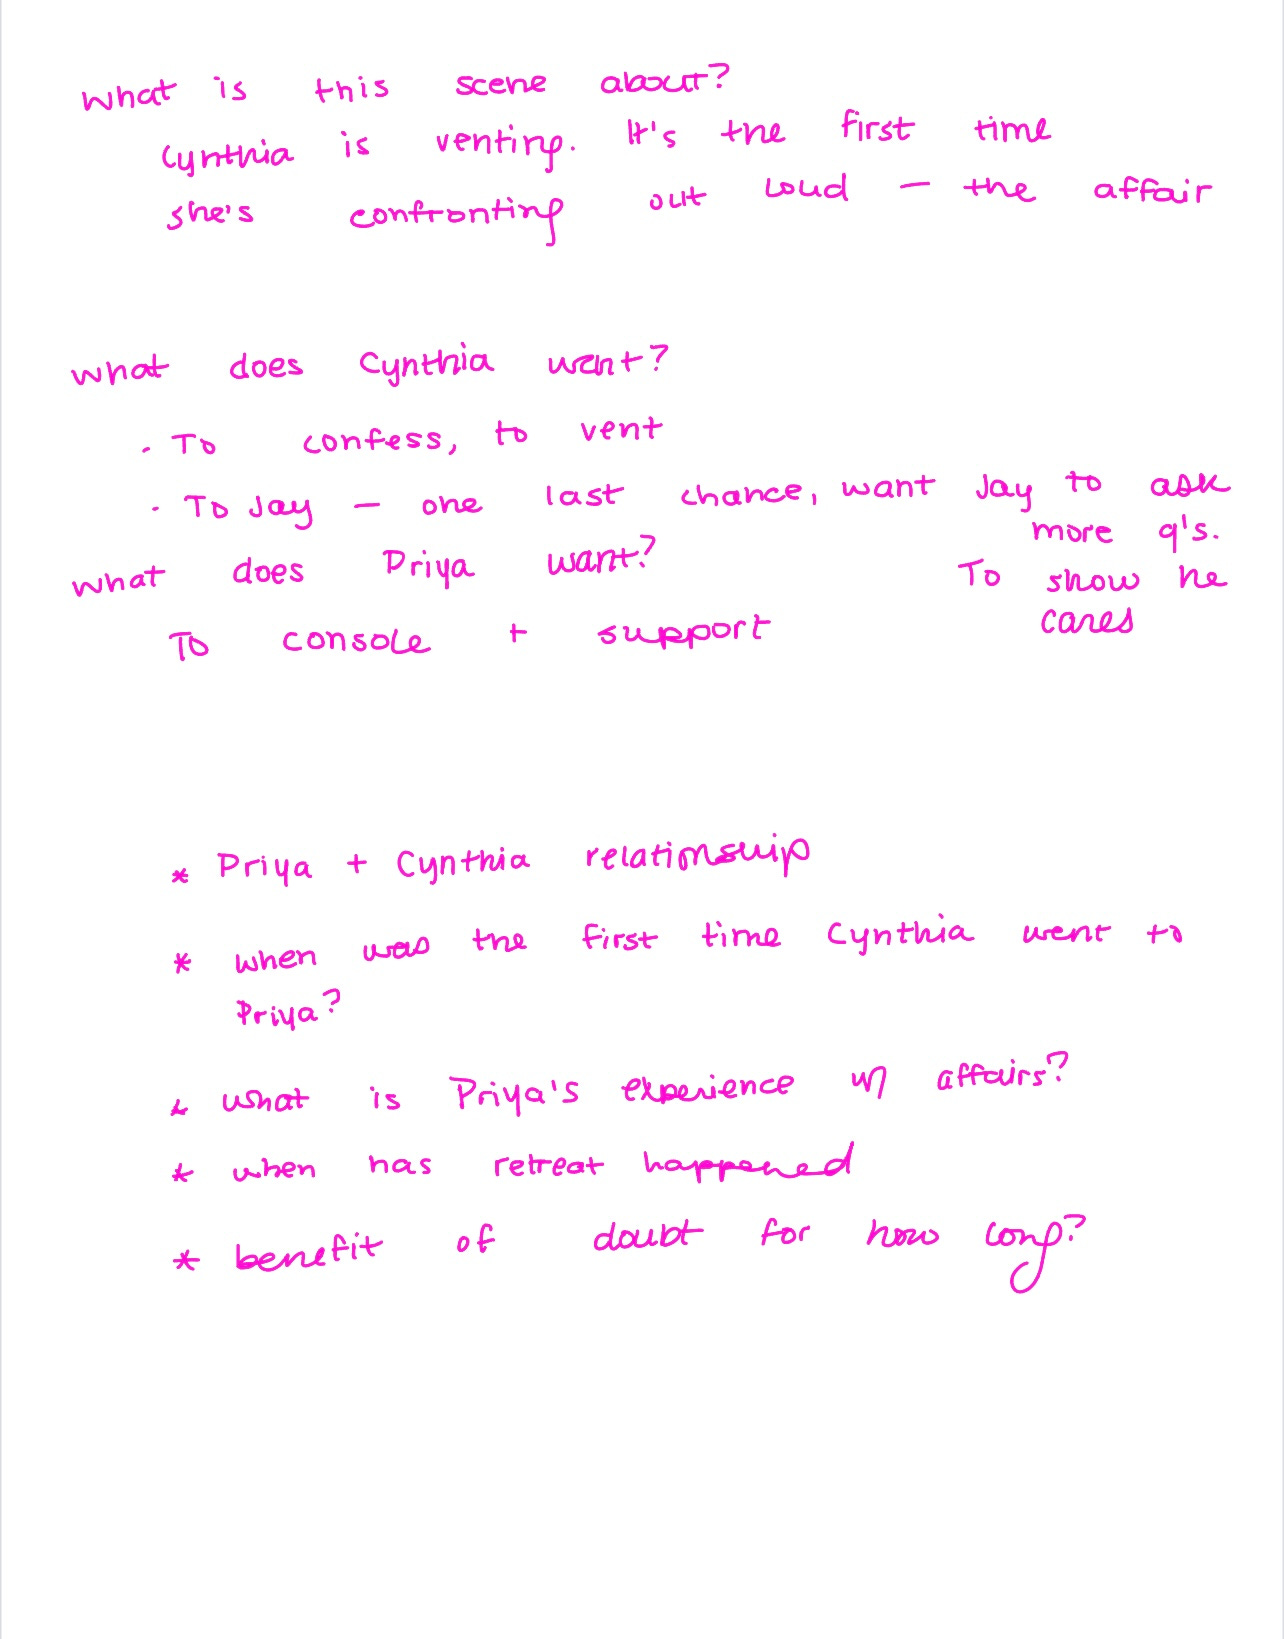 what is this scene about?
Cynthia is venting. It's the first time
she's confronting out loud – the affair
what does Cynthia want?
· To confess, to vent
· To Jay – one last chance, want Jay to ask
more q's.
To show he
cares
what does Priya want?
To console + support
* Priya + Cynthia relationship
* when was the first time Cynthia went to
Priya?
* what is Priya's experience w/ affairs?
* when has retreat happened
* benefit of doubt for how long?